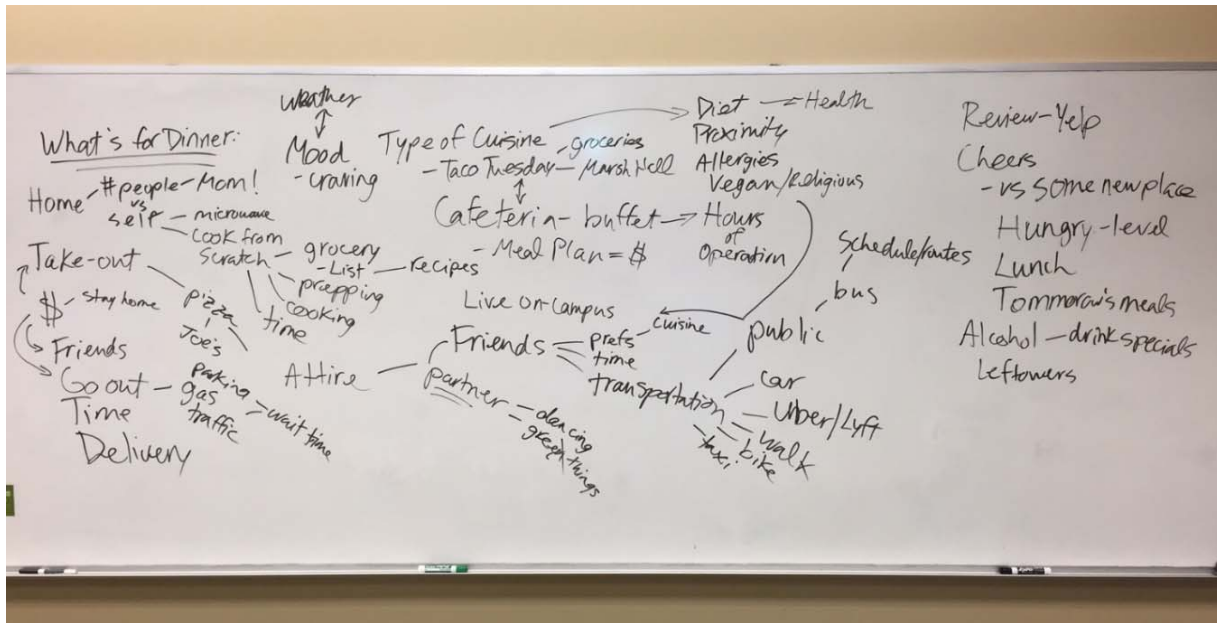 What's for Dinner:
Home
#people - Mom!
vs
self - microwave
cook from
scratch
grocery
- List
prepping
cooking
time
recipes
Take-out
pizza
Joe's
$ - stay home
Friends
Go out
parking
gas
traffic
wait time
Time
Delivery
weather
Mood
- craving
Type of Cuisine
groceries
- Taco Tuesday - Marsh
Cafeteria - buffet
Hours
of
Operation
- Meal Plan = $
Live on-campus
Attire
Friends
prefs
cuisine
time
transportation
partner
dancing
things
Diet
Health
Proximity
Allergies
Vegan/Religious
public
bus
Schedule/routes
car
Uber/Lyft
walk
bike
taxi
Review-Yelp
Cheers
- vs some new place
Hungry-level
Lunch
Tommorow's meals
Alcohol - drink specials
Leftovers